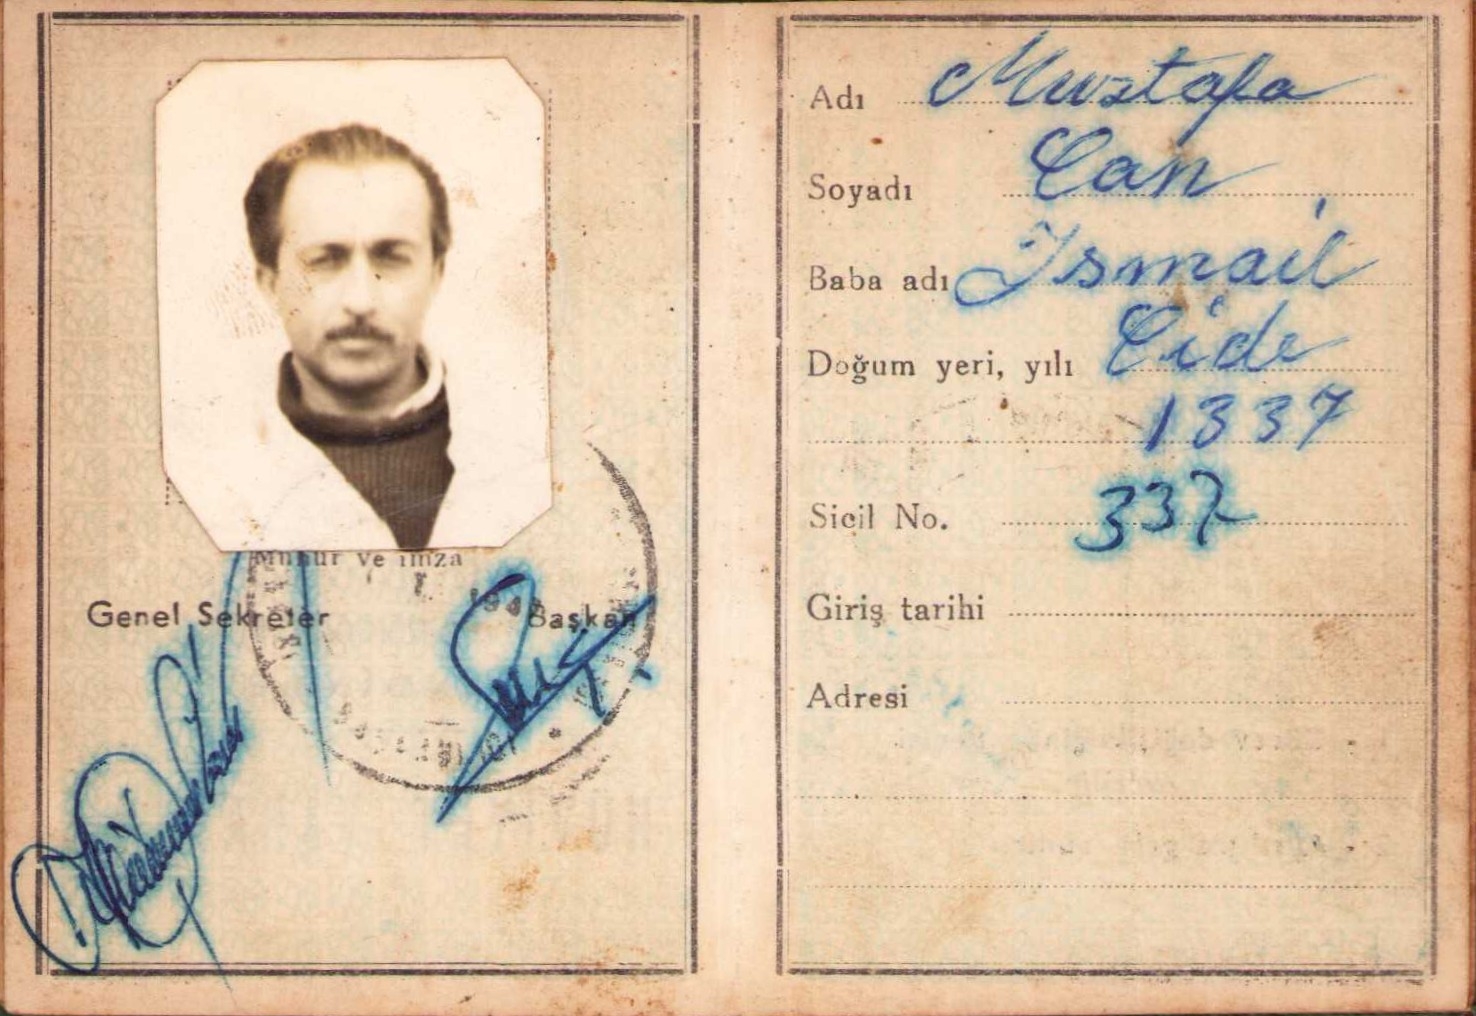 Mühür ve imza
Genel Sekreter Başkan
Adı Mustafa
Soyadı Can
Baba adı İsmail
Doğum yeri, yılı Cide
1337
Sicil No. 337
Giriş tarihi
Adresi